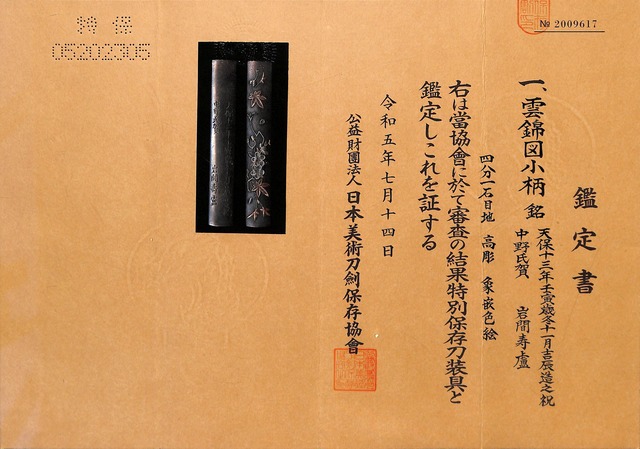 鑑定書
一、雲錦図小柄 銘 天保十三年壬寅歳冬十一月吉辰造之祝
中野氏賀 岩間寿盧
四分一石目地 高彫 象嵌色絵
右は當協會に於て審査の結果特別保存刀装具と
鑑定しこれを証する
令和五年七月十四日
公益財團法人 日本美術刀劍保存協會
№ 2009617
特保
05202305